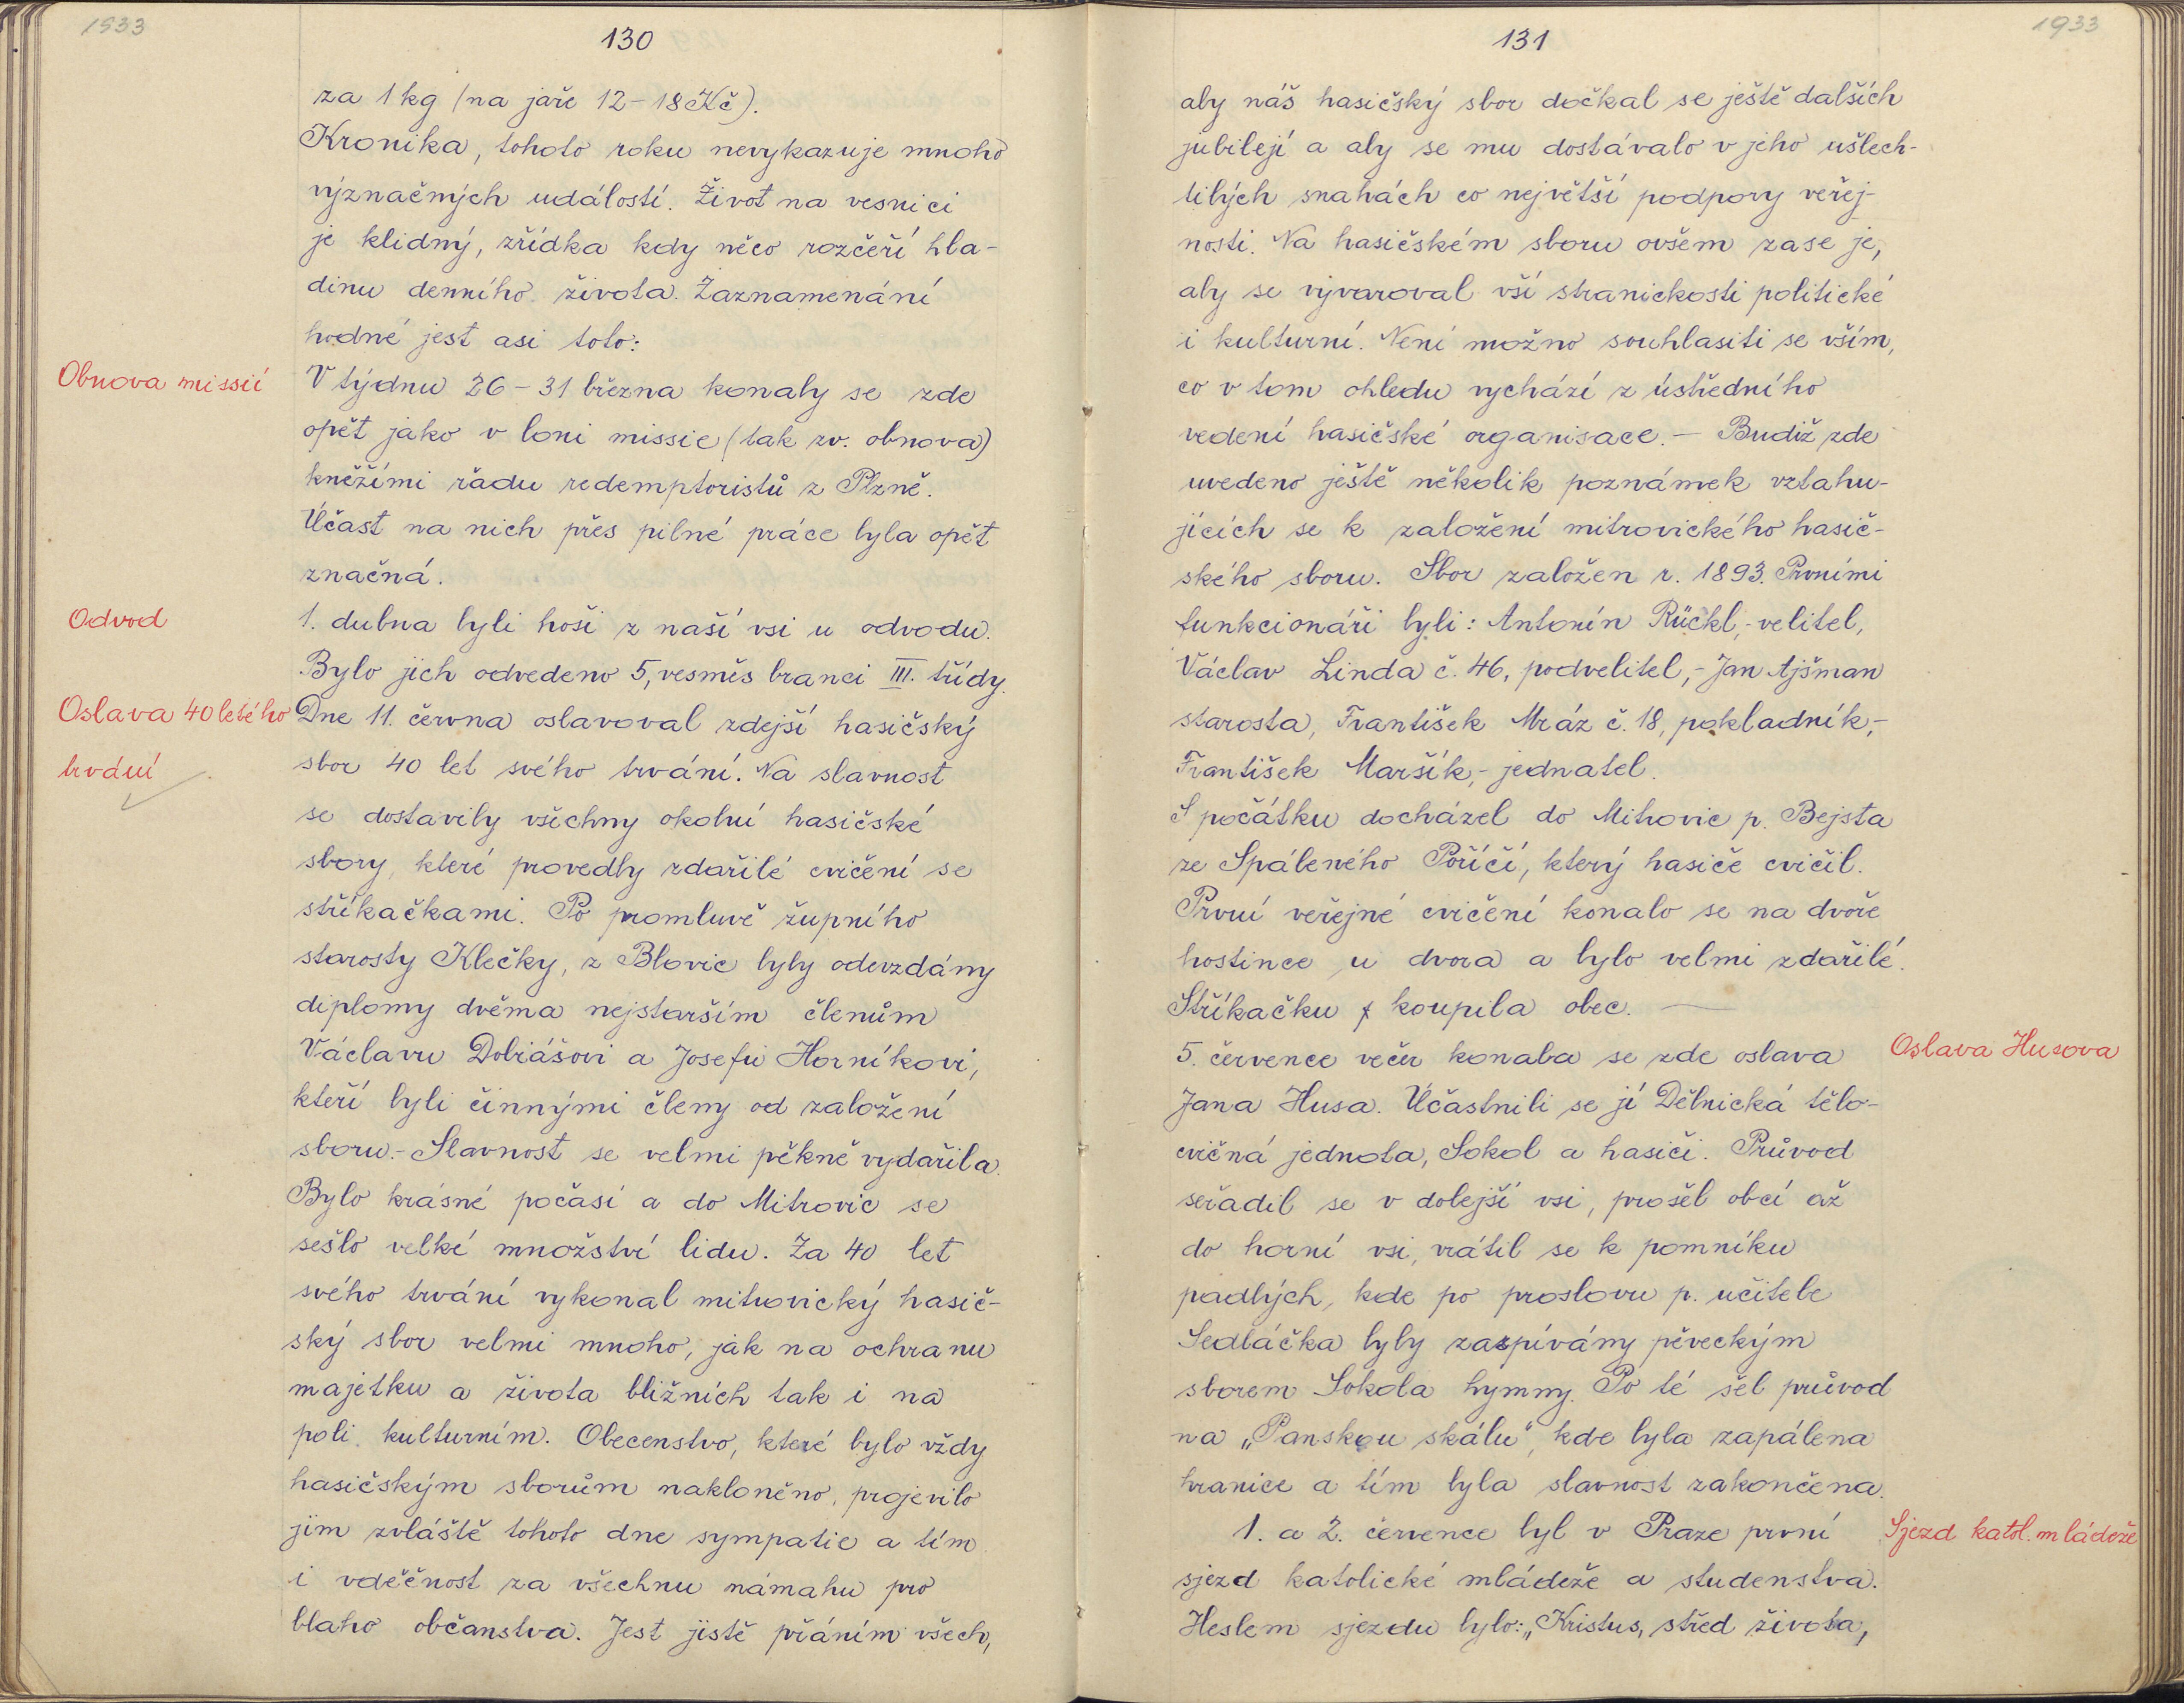 1933
130
za 1 kg (na jaře 12-18 Kč).
Kronika, tohoto roku nevykazuje mnoho
význačných událostí. Život na vesnici
je klidný, zřídka kdy něco rozčeří hla-
dinu denního života. Zaznamenání
hodné jest asi toto:
Obnova missií
V týdnu 26-31 března konaly se zde
opět jako v loni missie (tak zv. obnova)
kněžími řádu redemptoristů z Plzně.
Účast na nich přes pilné práce byla opět
značná.
Odvod
1. dubna byli hoši z naší vsi u odvodu.
Bylo jich odvedeno 5, vesměs branci III. třídy.
Oslava 40letého
trvání
Dne 11. června oslavoval zdejší hasičský
sbor 40 let svého trvání. Na slavnost
se dostavily všichny okolní hasičské
sbory, které provedly zdařilé cvičení se
stříkačkami. Po promluvě župního
starosty Klečky, z Blovic byly odevzdány
diplomy dvěma nejstarším členům
Václavu Dobiášovi a Josefu Horníkovi,
kteří byli činnými členy od založení
sboru.- Slavnost se velmi pěkně vydařila.
Bylo krásné počasí a do Mitrovic se
sešlo velké množství lidu. Za 40 let
svého trvání vykonal mitrovický hasič-
ský sbor velmi mnoho, jak na ochranu
majetku a života bližních tak i na
poli kulturním. Obecenstvo, které bylo vždy
hasičským sborům nakloněno, projevilo
jim zvláště tohoto dne sympatie a tím
i vděčnost za všechnu námahu pro
blaho občanstva. Jest jistě přáním všech,
1933
131
aby náš hasičský sbor dočkal se ještě dalších
jubilejí a aby se mu dostávalo v jeho ušlech-
tilých snahách co největší podpory veřej-
nosti. Na hasičském sboru ovšem zase je,
aby se vyvaroval vší stranickosti politické
i kulturní. Není možno souhlasiti se vším,
co v tom ohledu vychází z ústředního
vedení hasičské organisace. - Budiž zde
uvedeno ještě několik poznámek vztahu-
jících se k založení mitrovického hasič-
ského sboru. Sbor založen r. 1893. Prvními
funkcionáři byli: Antonín Rückl,- velitel,
Václav Linda č. 46, podvelitel,- Jan Ajšman
starosta, František Mráz č. 18, pokladník,-
František Maršík,- jednatel.
S počátku docházel do Mitrovic p. Bejsta
ze Spáleného Poříčí, který hasiče cvičil.
První veřejné cvičení konalo se na dvoře
hostince u dvora a bylo velmi zdařilé.
Stříkačku koupila obec. —
5. července večer konala se zde oslava
Oslava Husova
Jana Husa. Účastnili se jí Dělnická tělo-
cvičná jednota, Sokol a hasiči. Průvod
seřadil se v dolejší vsi, prošel obcí až
do horní vsi, vrátil se k pomníku
padlých, kde po proslovu p. učitele
Sedláčka byly zazpívány pěveckým
sborem Sokola hymny. Po té šel průvod
na „Panskou skálu", kde byla zapálena
hranice a tím byla slavnost zakončena.
1. a 2. července byl v Praze první
Sjezd katol. mládeže
sjezd katolické mládeže a studenstva.
Heslem sjezdu bylo: „Kristus, střed života,